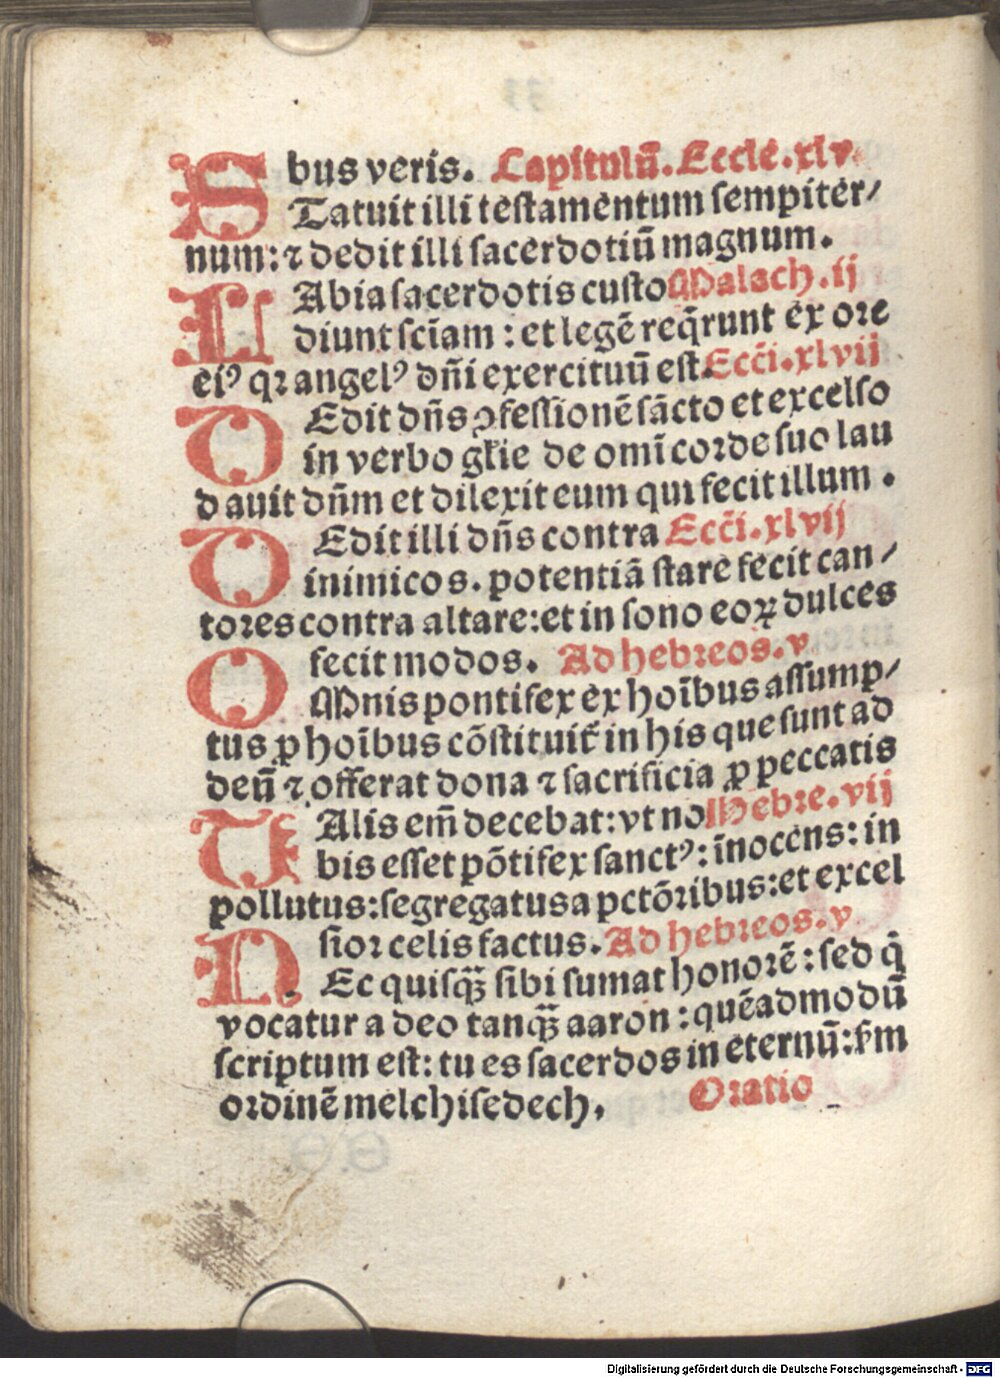 bus veris. Capitulū. Eccle. xlv
STatuit illi testamentum sempiter/
num: ⁊ dedit illi sacerdotiū magnum.
LAbia sacerdotis custo Malach. ij
diunt scīam : et legē req̄runt ex ore
eiꝰ qꝛ angelꝰ dn̄i exercituū est. Eccī. xlvij
DEdit dn̄s ꝯfessionē sācto et excelso
in verbo głie de omī corde suo lau
dauit dn̄m et dilexit eum qui fecit illum .
DEdit illi dn̄s contra Eccī. xlvij
inimicos. potentiā stare fecit can /
tores contra altare: et in sono eoꝝ dulces
fecit modos. Ad hebreos. v
OMnis pontifex ex hoībus assump/
tus ꝓ hoībus cōstituit᷑ in his que sunt ad
deū ⁊ offerat dona ⁊ sacrificia ꝓ peccatis
TAlis em̄ decebat: vt no Hebre. vij
bis esset pōtifex sanctꝰ: īnocens: in
pollutus: segregatus a pctōribus: et excel
sior celis factus. Ad hebreos. v
NEc quisqꝫ̄ sibi sumat honorē : sed q̇
vocatur a deo tanqꝫ̄ aaron : quēadmodū
scriptum est: tu es sacerdos in eternū: ẜm
ordinē melchisedech. Oratio
Digitalisierung gefördert durch die Deutsche Forschungsgemeinschaft - DFG